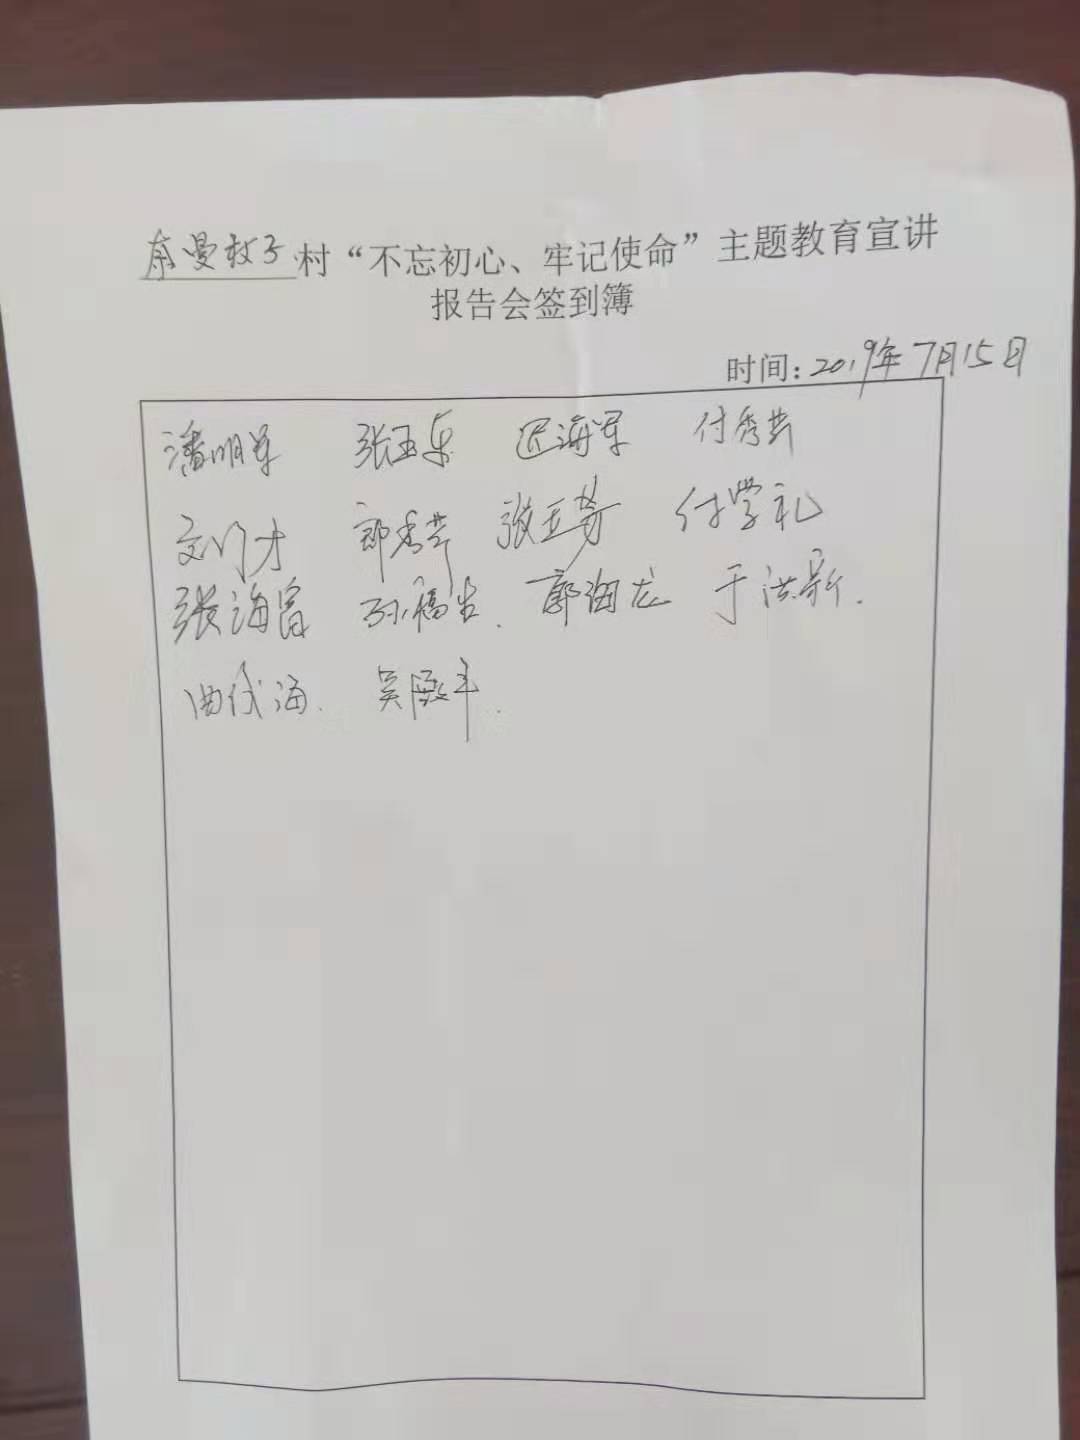 村“不忘初心、牢记使命”主题教育宣讲
报告会签到簿
时间：2019年7月15日
潘明军 张玉东 海军 付秀芸
郎秀芹 张玉芳 付学礼
张海富 孙福生. 郭海龙 于洪新.
曲代海. 吴殿丰.